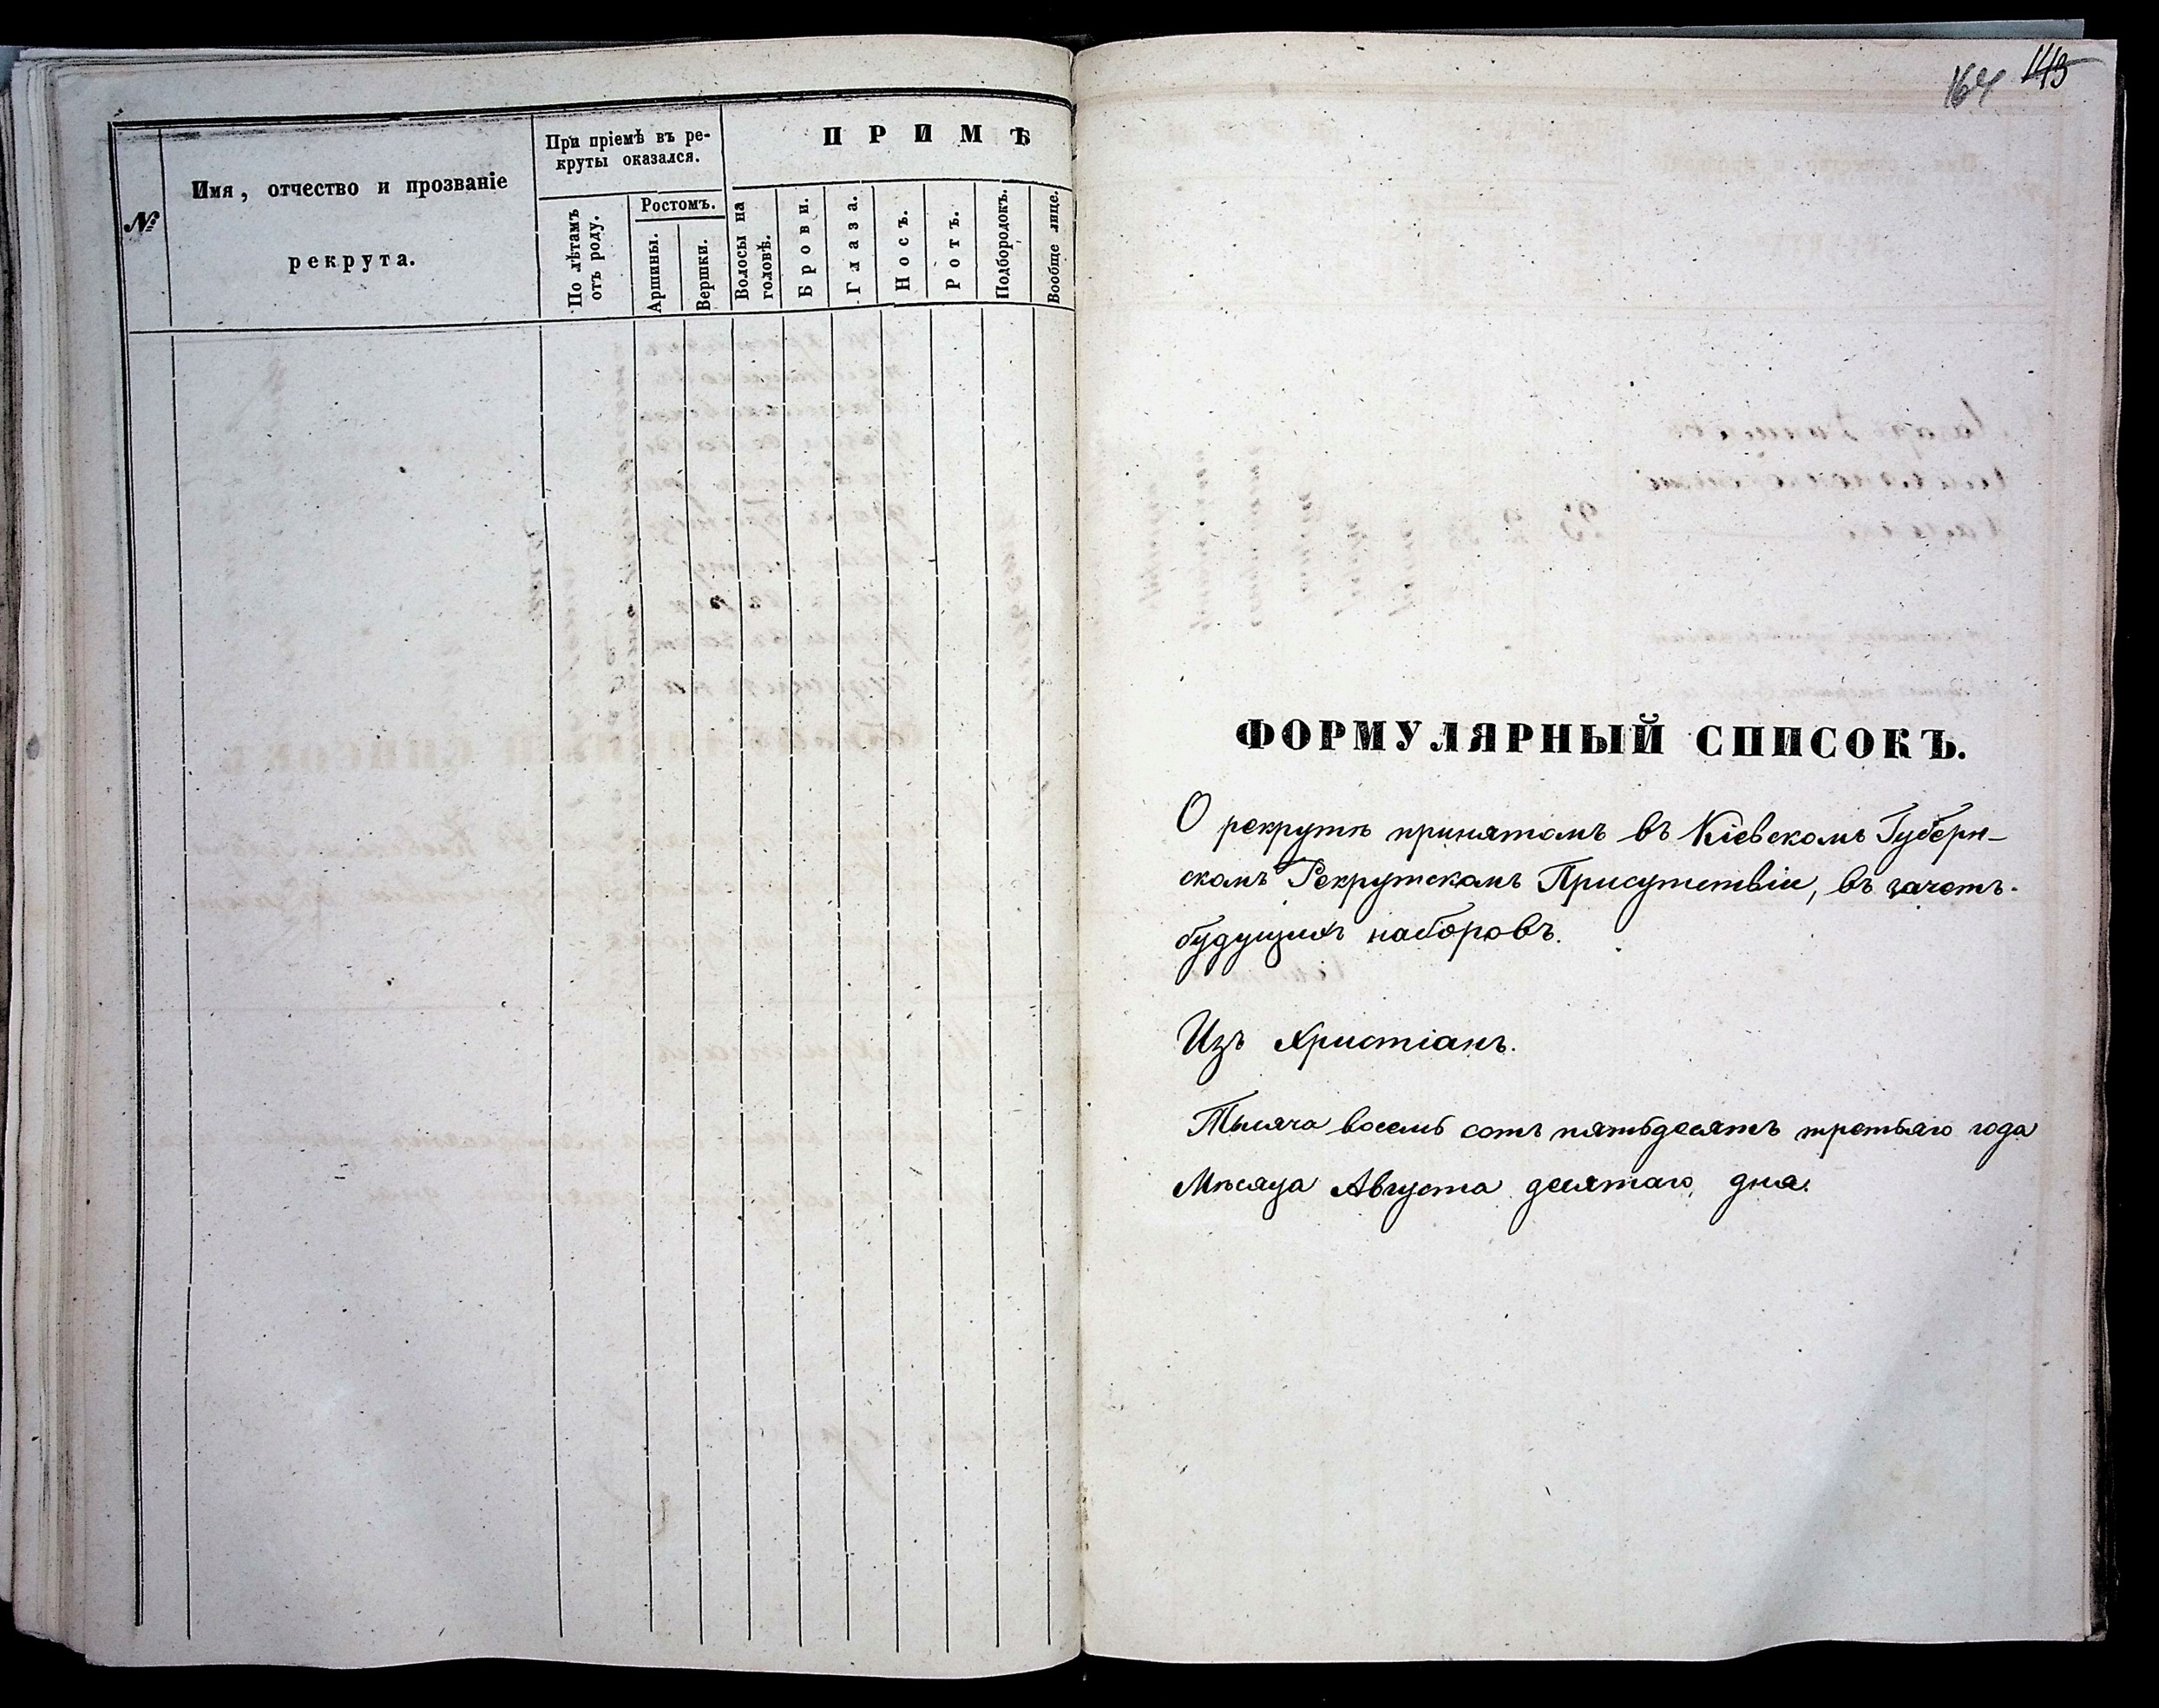 №
Имя, отчество и прозваніе
рекрута.
При пріемѣ въ ре-
круты оказался.
По лѣтамъ
отъ роду.
Ростомъ.
Аршины.
Вершки.
П Р И М Ѣ
Волосы на
головѣ.
Брови.
Глаза.
Носъ.
Ротъ.
Подбородокъ.
Вообще лице.
164 113
ФОРМУЛЯРНЫЙ СПИСОКЪ.
О рекрутѣ принятомъ въ Кіевскомъ Губерн-
скомъ Рекрутскомъ Присутствіи, въ зачетъ
будущихъ наборовъ.
Изъ Христіанъ.
Тысяча восемь сотъ пятьдесятъ третьяго года
Мѣсяца Августа десятаго дня.